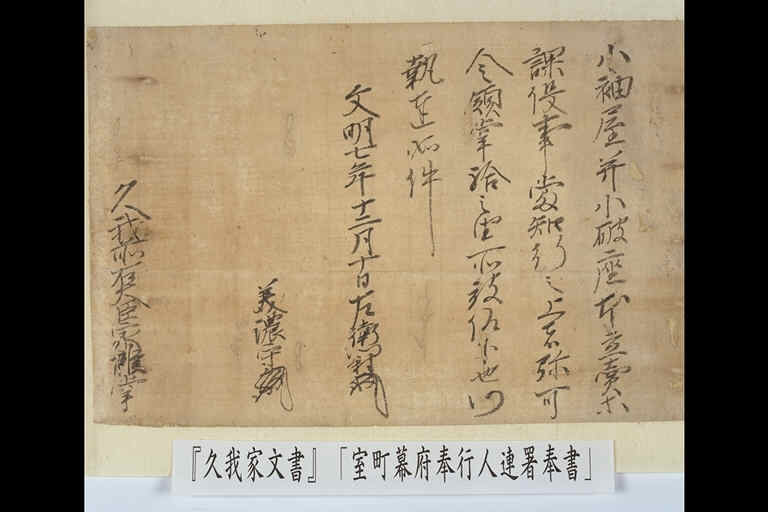 小袖屋并小破座立売
課役事當知行之上者弥可
令領掌給之由所被仰下也仍
執達如件
文明七年十二月十日左衛門尉
美濃守
久我前右大臣家雑掌
『久我家文書』「室町幕府奉行人連署奉書」